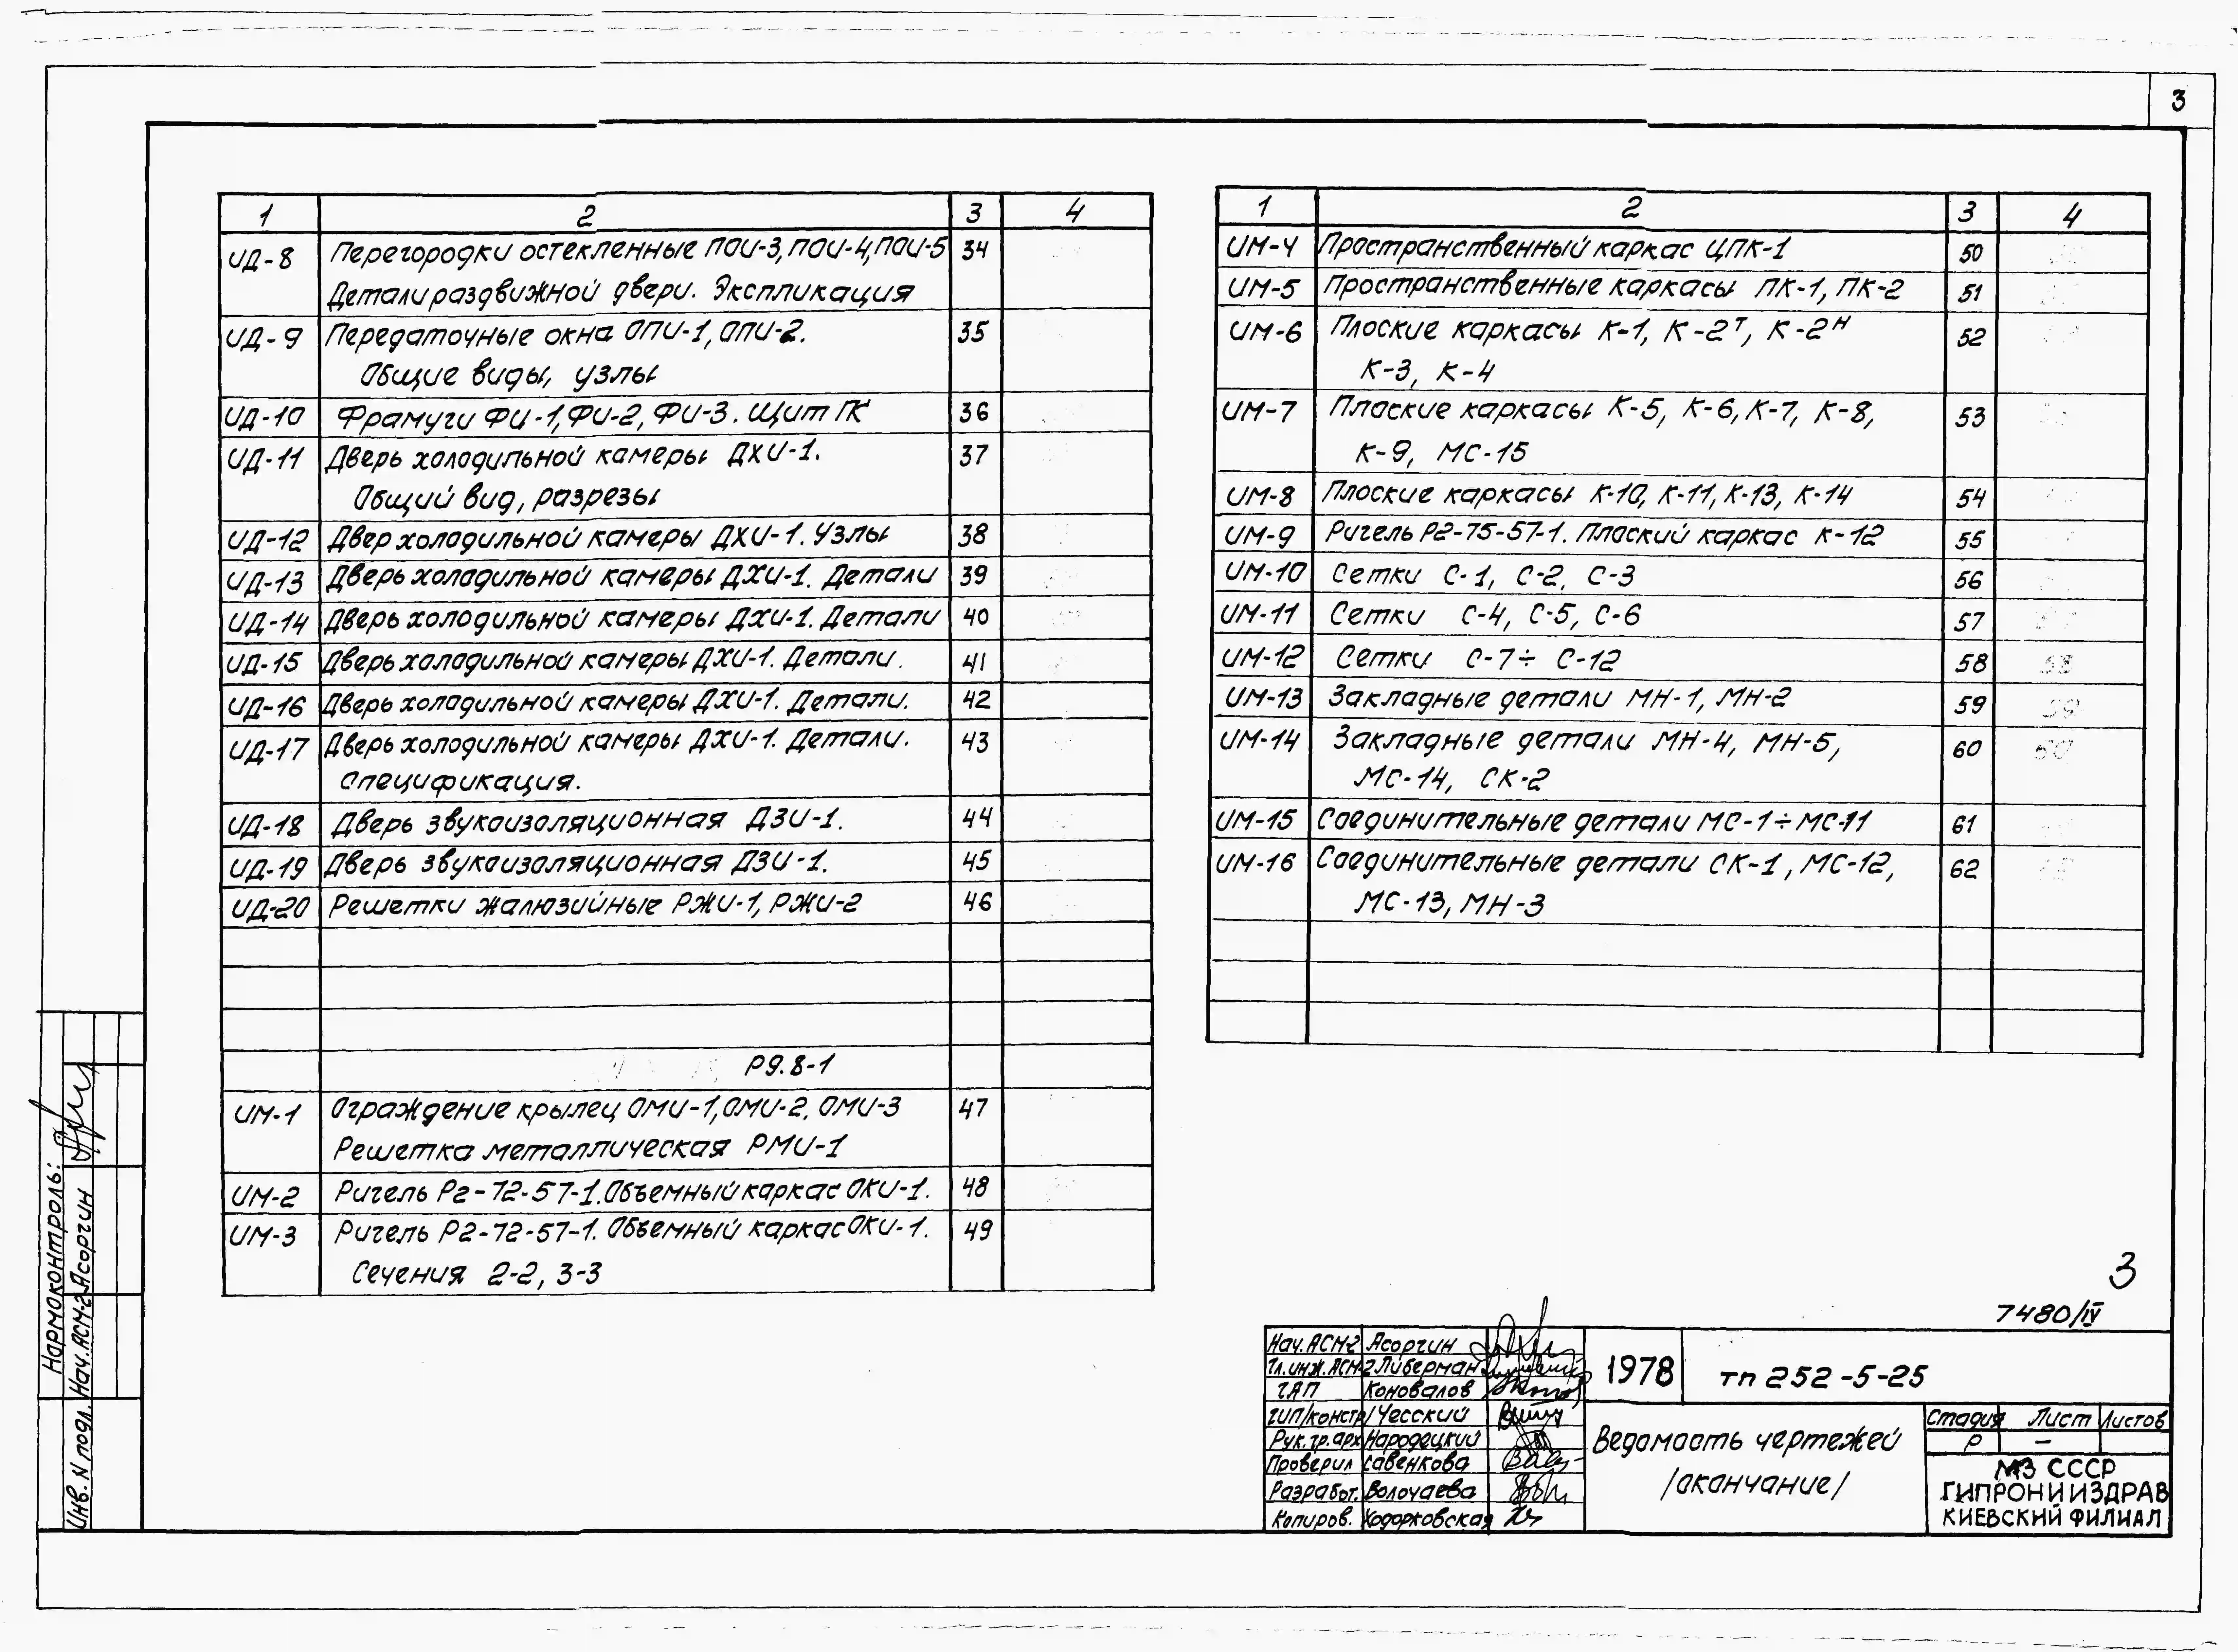 3
1 2 3 4
ИД-8 Перегородки остекленные ПОИ-3, ПОИ-4, ПОИ-5 34
Детали раздвижной двери. Экспликация
ИД-9 Передаточные окна ОПИ-1, ОПИ-2. 35
Общие виды, узлы
ИД-10 Фрамуги ФИ-1, ФИ-2, ФИ-3. Щит ГК 36
ИД-11 Дверь холодильной камеры ДХИ-1. 37
Общий вид, разрезы
ИД-12 Двер холодильной камеры ДХИ-1. Узлы 38
ИД-13 Дверь холодильной камеры ДХИ-1. Детали 39
ИД-14 Дверь холодильной камеры ДХИ-1. Детали 40
ИД-15 Дверь холодильной камеры ДХИ-1. Детали. 41
ИД-16 Дверь холодильной камеры ДХИ-1. Детали. 42
ИД-17 Дверь холодильной камеры ДХИ-1. Детали. 43
Спецификация.
ИД-18 Дверь звукоизоляционная ДЗИ-1. 44
ИД-19 Дверь звукоизоляционная ДЗИ-1. 45
ИД-20 Решетки жалюзийные РЖИ-1, РЖИ-2 46
Р9.8-1
ИМ-1 Ограждение крылец ОМИ-1, ОМИ-2, ОМИ-3 47
Решетка металлическая РМИ-1
ИМ-2 Ригель Р2-72-57-1. Объемный каркас ОКИ-1. 48
ИМ-3 Ригель Р2-72-57-1. Объемный каркас ОКИ-1. 49
Сечения 2-2, 3-3
1 2 3 4
ИМ-4 Пространственный каркас ЦПК-1 50
ИМ-5 Пространственные каркасы ПК-1, ПК-2 51
ИМ-6 Плоские каркасы К-1, К-2т, К-2н 52
К-3, К-4
ИМ-7 Плоские каркасы К-5, К-6, К-7, К-8, 53
К-9, МС-15
ИМ-8 Плоские каркасы К-10, К-11, К-13, К-14 54
ИМ-9 Ригель Р2-75-57-1. Плоский каркас К-12 55
ИМ-10 Сетки С-1, С-2, С-3 56
ИМ-11 Сетки С-4, С-5, С-6 57
ИМ-12 Сетки С-7÷ С-12 58 58
ИМ-13 Закладные детали МН-1, МН-2 59 59
ИМ-14 Закладные детали МН-4, МН-5, 60 60
МС-14, СК-2
ИМ-15 Соединительные детали МС-1÷МС-11 61
ИМ-16 Соединительные детали СК-1, МС-12, 62
МС-13, МН-3
3
7480/IV
Нач.АСМ-2 Асоргин
Гл.инж.АСМ-2 Либерман
ГАП Коновалов
ГИП/констр/ Чесский
Рук.гр.арх Народецкий
Проверил Савенкова
Разработ. Волочаева
Копиров. Ходорковская
1978 тп 252-5-25
Ведомость чертежей
/окончание/
Стадия Лист Листов
Р –
МЗ СССР
ГИПРОНИИЗДРАВ
КИЕВСКИЙ ФИЛИАЛ
Нормоконтроль:
Нач.АСМ-2 Асоргин
Инв. N подл.